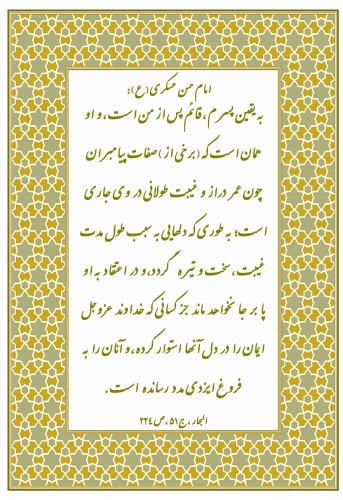 امام حسن عسکری(ع):
به یقین پسرم، قائم پس از من است، و او
همان است که (برخی از) صفات پیامبران
چون عمر دراز و غیبت طولانی در وی جاری
است؛ به طوری که دلهایی به سبب طول مدت
غیبت، سخت و تیره گردد، و در اعتقاد به او
پا بر جا نخواهد ماند جز کسانی که خداوند عزوجل
ایمان را در دل آنها استوار کرده، و آنان را به
فروغ ایزدی مدد رسانده است.
البحار، ج ۵۱، ص ۲۲۴